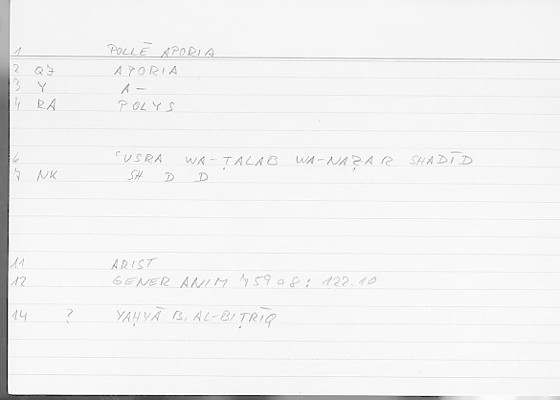 1 POLLĒ APORIA
2 QZ APORIA
3 Y A-
4 RA POLYS
6 ʿUSRA WA-ṬALAB WA-NAẒAR SHADĪD
7 NK SH D D
11 ARIST
12 GENER ANIM 759a8: 122.10
14 ? YAḤYĀ B. AL-BIṬRĪQ